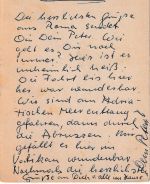 Die herzlichsten Grüße
aus Roma sendet
Dir Dein Peter. Wie
geht es Dir noch
immer? Hier ist es
unheimlich heiß.
Die Fahrt bis hier
her war wunderbar
Wir sind am Adria-
tischen Meer entlang
gefahren dann durch
die Abruzzen. Nun
gefällt es hier im
Vatikan wunderbar
Nochmals die herzlichste
Grüße an Dich + alle zu Hause
Dein Peter